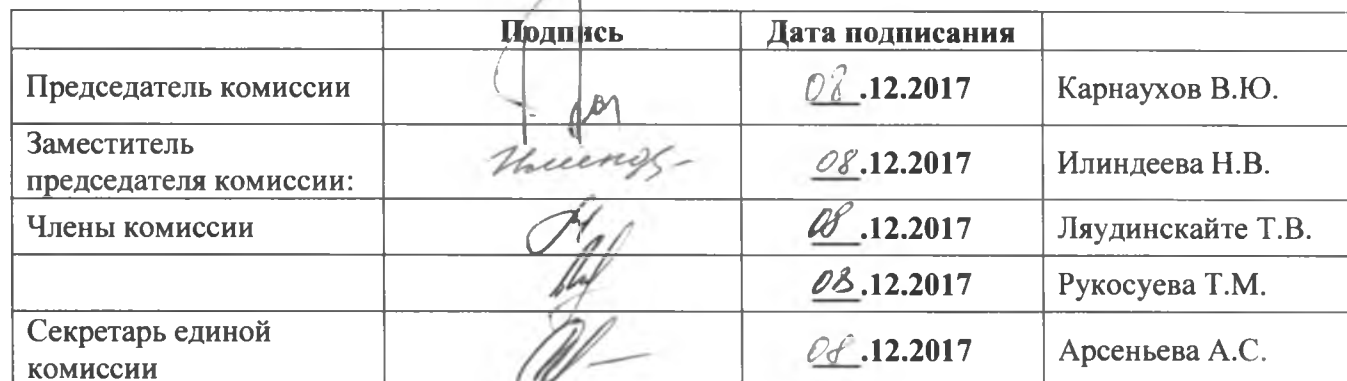 Подпись Дата подписания
Председатель комиссии 08.12.2017 Карнаухов В.Ю.
Заместитель
председателя комиссии: 08.12.2017 Илиндеева Н.В.
Члены комиссии 08.12.2017 Ляудинскайте Т.В.
08.12.2017 Рукосуева Т.М.
Секретарь единой
комиссии 08.12.2017 Арсеньева А.С.